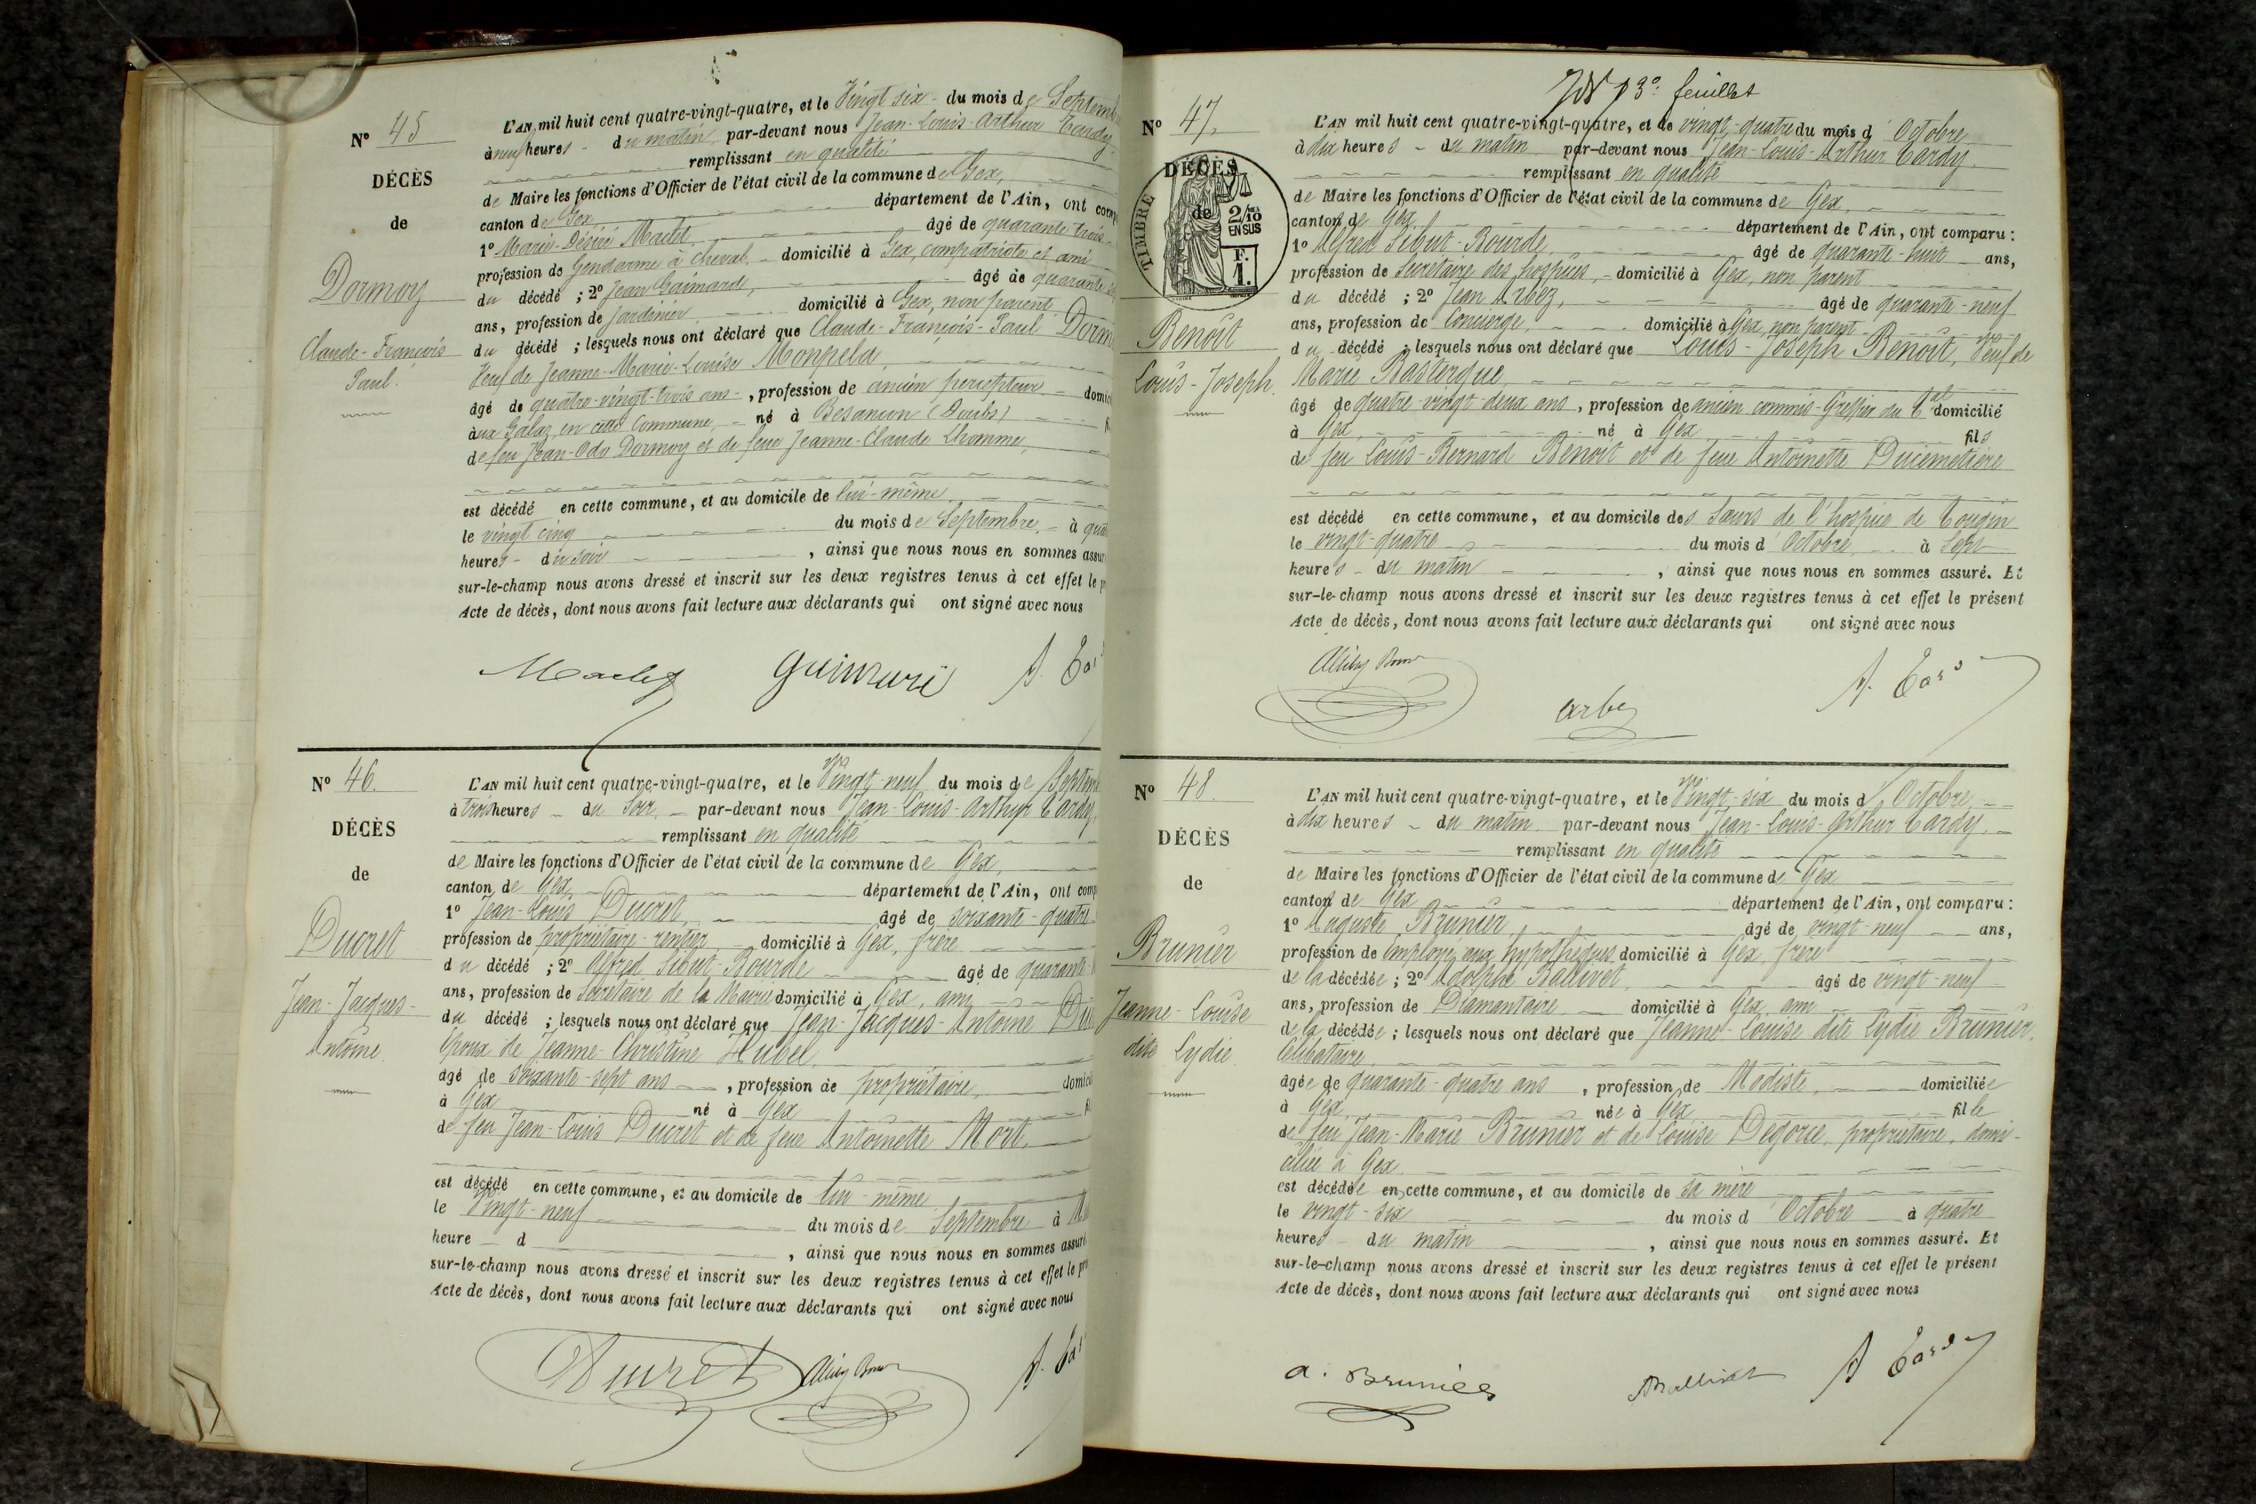 N° 45
DÉCÈS
de
Dormoy
Claude-François
Paul.
L'AN mil huit cent quatre-vingt-quatre, et le Vingt six du mois de Septemb
à neuf heures du matin par-devant nous Jean-Louis-Arthur Tardy
remplissant en qualité
de Maire les fonctions d'Officier de l'état civil de la commune de Gex,
canton de Gex département de l'Ain, ont comp
1° Marie-Désiré Maclet âgé de quarante trois
profession de Gendarme à cheval domicilié à Gex, compatriote et ami
du décédé ; 2° Jean Guimard, âgé de quarante
ans, profession de Jardinier domicilié à Gex, non parent
du décédé ; lesquels nous ont déclaré que Claude-François-Paul Dorm
Veuf de Jeanne-Marie-Louise Monpela,
âgé de quatre-vingt-trois ans, profession de ancien percepteur domic
à en cette Commune, né à Besançon (Doubs) f
de feu Jean-Odo Dormoy et de feue Jeanne-Claude Lhomme,
est décédé en cette commune, et au domicile de lui-même
le vingt cinq du mois de Septembre à qua
heures du soir , ainsi que nous nous en sommes assur
sur-le-champ nous avons dressé et inscrit sur les deux registres tenus à cet effet le p
Acte de décès, dont nous avons fait lecture aux déclarants qui ont signé avec nous
Maclet Guimard A. Tar
N° 46.
DÉCÈS
de
Ducret
Jean-Jacques-
Antoine.
L'AN mil huit cent quatre-vingt-quatre, et le Vingt-neuf du mois de Septem
à trois heures du soir par-devant nous Jean-Louis-Arthur Tardy,
remplissant en qualité
de Maire les fonctions d'Officier de l'état civil de la commune de Gex,
canton de Gex, département de l'Ain, ont comp
1° Jean-Louis Ducret, âgé de soixante-quatre
profession de propriétaire-rentier domicilié à Gex, frère
du décédé ; 2° Alfred Sibut-Bourde âgé de quarante
ans, profession de Secrétaire de la Mairie domicilié à Gex, ami
du décédé ; lesquels nous ont déclaré que Jean-Jacques-Antoine Du
Epoux de Jeanne-Christine Hubel,
âgé de soixante-sept ans , profession de propriétaire, domici
à Gex né à Gex fi
de feu Jean-Louis Ducret et de feue Antoinette Mort,
est décédé en cette commune, et au domicile de lui-même
le Vingt-neuf du mois de Septembre à M
heure d , ainsi que nous nous en sommes assuré
sur-le-champ nous avons dressé et inscrit sur les deux registres tenus à cet effet le pr
Acte de décès, dont nous avons fait lecture aux déclarants qui ont signé avec nous
Ducret A. Tar
13e feuillet
N° 47,
DÉCÈS
de
TIMBRE
2/10
EN SUS
F.
1.
Benoît
Louis-Joseph.
L'AN mil huit cent quatre-vingt-quatre, et le vingt-quatre du mois d'Octobre
à dix heures du matin par-devant nous Jean-Louis-Arthur Tardy
remplissant en qualité
de Maire les fonctions d'Officier de l'état civil de la commune de Gex,
canton de Gex, département de l'Ain, ont comparu :
1° Alfred Sibut-Bourde, âgé de quarante-huit ans,
profession de Secrétaire des hospices, domicilié à Gex, non parent
du décédé ; 2° Jean Arbez, âgé de quarante-neuf
ans, profession de Concierge, domicilié à Gex, non parent
du décédé ; lesquels nous ont déclaré que Louis-Joseph Benoît, Veuf de
Marie Rasterque,
âgé de quatre-vingt deux ans, profession de ancien commis-Greffier du Tal domicilié
à Gex, né à Gex fils
de feu Louis-Bernard Benoît et de feue Antoinette Ducimetière
est décédé en cette commune, et au domicile des Sœurs de l'hospice de Tougin
le vingt-quatre du mois d'Octobre à Sept
heures du matin , ainsi que nous nous en sommes assuré. Et
sur-le-champ nous avons dressé et inscrit sur les deux registres tenus à cet effet le présent
Acte de décès, dont nous avons fait lecture aux déclarants qui ont signé avec nous
Arbez A. Tardy
N° 48.
DÉCÈS
de
Brunier
Jeanne-Louise
dite Lydie.
L'AN mil huit cent quatre-vingt-quatre, et le Vingt-six du mois d'Octobre
à dix heures du matin par-devant nous Jean-Louis-Arthur Tardy
remplissant en qualité
de Maire les fonctions d'Officier de l'état civil de la commune de Gex
canton de Gex département de l'Ain, ont comparu :
1° Auguste Brunier, âgé de vingt-neuf ans,
profession de Employé aux hypothèques domicilié à Gex, frère
de la décédée ; 2° Adolphe Ballivet, âgé de vingt-neuf
ans, profession de Diamantaire domicilié à Gex, ami
de la décédée ; lesquels nous ont déclaré que Jeanne-Louise dite Lydie Brunier,
Célibataire
âgée de quarante-quatre ans , profession de Modiste, domiciliée
à Gex, née à Gex fille
de feu Jean-Marie Brunier et de Louise Degorce, propriétaire, domi-
ciliée à Gex
est décédée en cette commune, et au domicile de sa mère
le vingt-six du mois d'Octobre à quatre
heures du matin , ainsi que nous nous en sommes assuré. Et
sur-le-champ nous avons dressé et inscrit sur les deux registres tenus à cet effet le présent
Acte de décès, dont nous avons fait lecture aux déclarants qui ont signé avec nous
A. Brunier ABallivet A Tardy